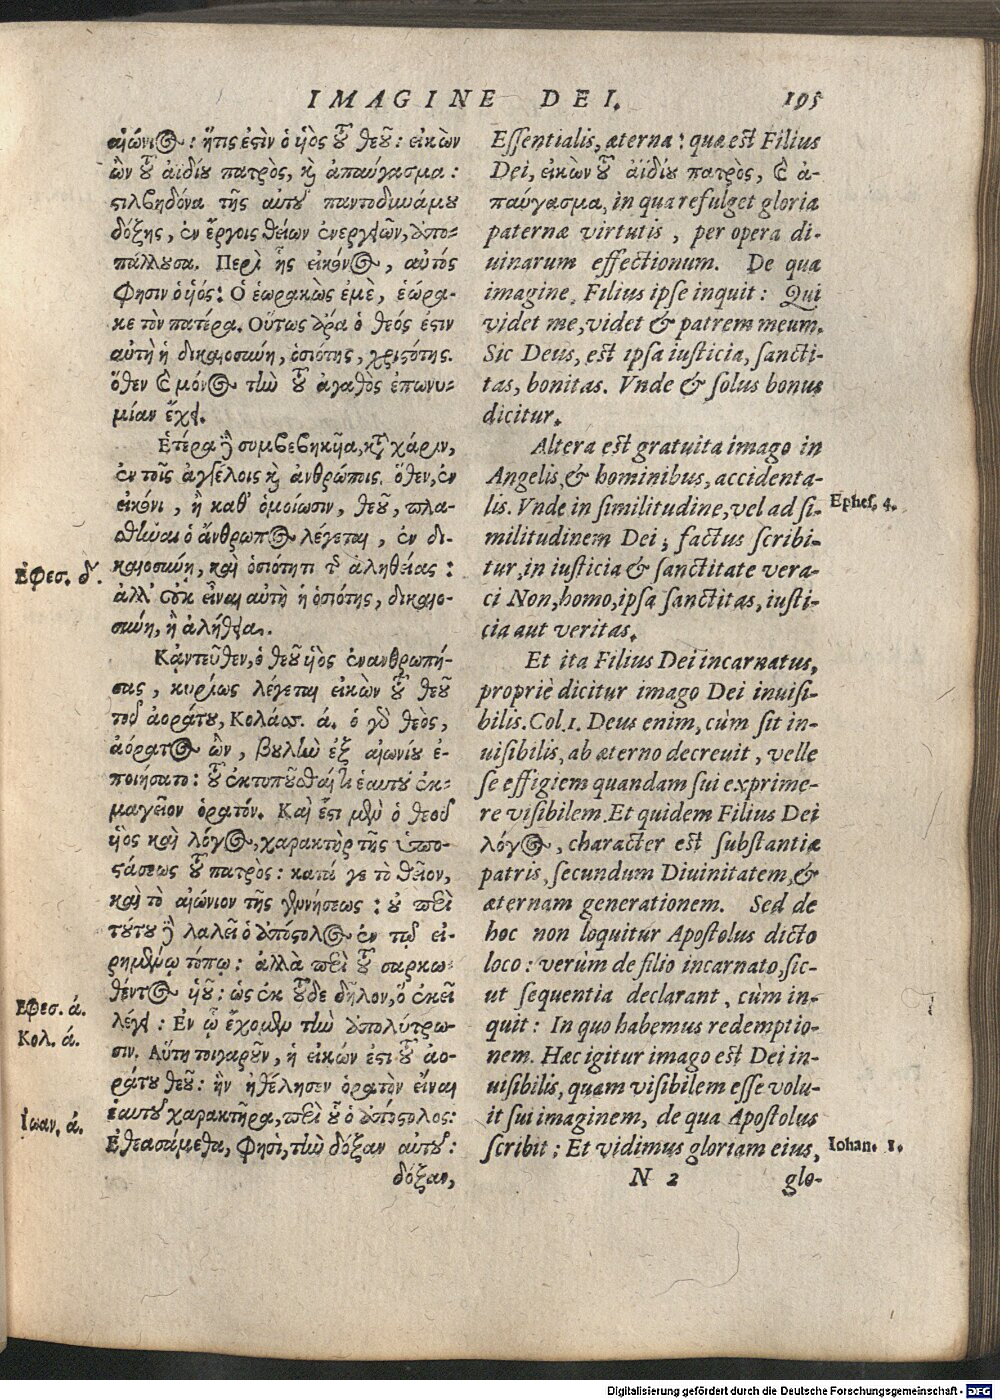 IMAGINE DEI. 195
αἰώνιος: ἥτις ἐστὶν ὁ υἱὸς τοῦ θεοῦ: εἰκὼν
ὢν τοῦ ἀϊδίου πατρὸς, καὶ ἀπαύγασμα:
στιλβηδόνα τῆς αὐτοῦ παντοδυνάμου
δόξης, ἐν ἔργοις θείων ἐνεργειῶν, ἀπο-
πάλλουσα. Περὶ ἧς εἰκόνος, αὐτός
φησιν ὁ υἱός: Ὁ ἑωρακὼς ἐμὲ, ἑώρα-
κε τὸν πατέρα. Οὕτως ἄρα ὁ θεός ἐστιν
αὐτὴ ἡ δικαιοσύνη, ὁσιότης, χρηστότης.
ὅθεν καὶ μόνος τὴν τοῦ ἀγαθὸς ἐπωνυ-
μίαν ἔχει.
Ἑτέρα δὲ συμβεβηκυῖα, κατὰ χάριν,
ἐν τοῖς ἀγγέλοις καὶ ἀνθρώποις. ὅθεν, ἐν
εἰκόνι, ἢ καθ' ὁμοίωσιν, θεοῦ, πλα-
σθῆναι ὁ ἄνθρωπος λέγεται, ἐν δι-
καιοσύνῃ, καὶ ὁσιότητι τῆς ἀληθείας:
ἀλλ' οὐκ εἶναι αὐτὴ ἡ ὁσιότης, δικαιο-
σύνη, ἢ ἀλήθεια.
Κἀντεῦθεν, ὁ θεοῦ υἱὸς ἐνανθρωπή-
σας, κυρίως λέγεται εἰκὼν τοῦ θεοῦ
τοῦ ἀοράτου, Κολάσσ. ά. ὁ γὰρ θεὸς,
ἀόρατος ὢν, βουλὴν ἐξ αἰωνίου ἐ-
ποιήσατο: τοῦ ἐκτυποῦσθαί τι ἑαυτοῦ ἐκ-
μαγεῖον ὁρατόν. Καὶ ἔστι μὲν ὁ θεοῦ
υἱὸς καὶ λόγος, χαρακτὴρ τῆς ὑπο-
στάσεως τοῦ πατρός: κατά γε τὸ θεῖον,
καὶ τὸ αἰώνιον τῆς γεννήσεως: οὐ περὶ
τούτου δὲ λαλεῖ ὁ ἀπόστολος ἐν τῷ εἰ-
ρημένῳ τόπῳ: ἀλλὰ περὶ τοῦ σαρκω-
θέντος υἱοῦ: ὡς ἐκ τοῦδε δῆλον, ὃ ἐκεῖ
λέγει: Ἐν ᾧ ἔχομεν τὴν ἀπολύτρω-
σιν. Αὕτη τοιγαροῦν, ἡ εἰκών ἐστι τοῦ ἀο-
ράτου θεοῦ: ἣν ἠθέλησεν ὁρατὸν εἶναι
ἑαυτοῦ χαρακτῆρα, περὶ οὗ ὁ ἀπόστολος:
Ἐθεασάμεθα, φησὶ, τὴν δόξαν αὐτοῦ:
δόξαν,
Ἐφεσ. δ.
Ἐφεσ. ά.
Κολ. ά.
Ἰωαν. ά.
Essentialis, æterna: quæ est Filius
Dei, εἰκὼν τοῦ ἀϊδίου πατρὸς, καὶ ἀ-
παύγασμα, in qua refulget gloria
paternæ virtutis, per opera di-
uinarum effectionum. De qua
imagine, Filius ipse inquit: Qui
videt me, videt & patrem meum.
Sic Deus, est ipsa iusticia, sancti-
tas, bonitas. Vnde & solus bonus
dicitur.
Altera est gratuita imago in
Angelis, & hominibus, accidenta-
lis. Vnde in similitudine, vel ad si-
militudinem Dei, factus scribi-
tur, in iusticia & sanctitate vera-
ci Non, homo, ipsa sanctitas, iusti-
cia aut veritas.
Et ita Filius Dei incarnatus,
propriè dicitur imago Dei inuisi-
bilis. Col. 1. Deus enim, cùm sit in-
uisibilis, ab æterno decreuit, velle
se effigiem quandam sui exprime-
re visibilem. Et quidem Filius Dei
λόγος, character est substantiæ
patris, secundum Diuinitatem, &
æternam generationem. Sed de
hoc non loquitur Apostolus dicto
loco: verùm de filio incarnato, sic-
ut sequentia declarant, cùm in-
quit: In quo habemus redemptio-
nem. Hæc igitur imago est Dei in-
uisibilis, quam visibilem esse volu-
it sui imaginem, de qua Apostolus
scribit; Et vidimus gloriam eius,
N 2 glo-
Ephes. 4.
Iohan. 1.
Digitalisierung gefördert durch die Deutsche Forschungsgemeinschaft - DFG